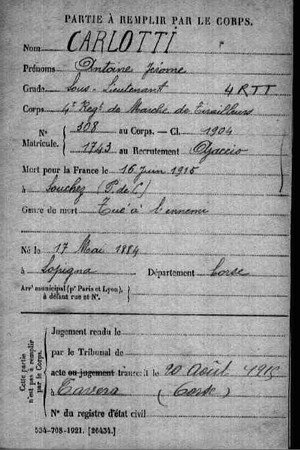 PARTIE À REMPLIR PAR LE CORPS.
Nom CARLOTTI
Prénoms Antoine Jérome
Grade Sous-Lieutenant 4 RTT
Corps 4e Regt de Marche de Tirailleurs
N° 308 au Corps. — Cl. 1904
Matricule. 1743 au Recrutement Ajaccio
Mort pour la France le 16 Juin 1915
à Souchez (P. de C)
Genre de mort Tué à l'ennemi
Né le 17 Mai 1884
à Lopigna Département Corse
Arrt municipal (pr Paris et Lyon),
à défaut rue et N°.
Cette partie n'est pas à remplir par le Corps.
Jugement rendu le
par le Tribunal de
acte ou jugement transcrit le 20 Août 1915
à Tavera (Corse)
N° du registre d'état civil
534-708-1921. [26434.]